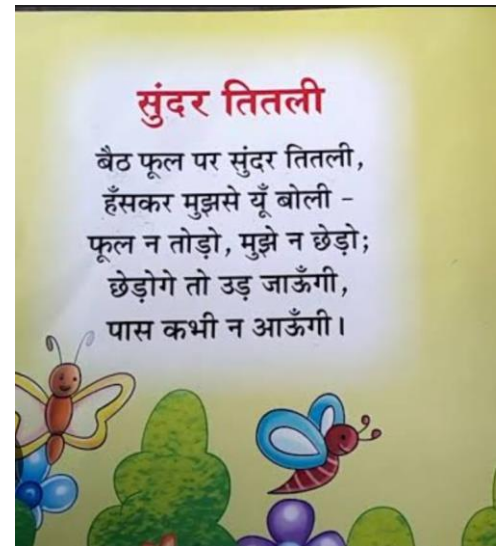 सुंदर तितली
बैठ फूल पर सुंदर तितली,
हँसकर मुझसे यूँ बोली -
फूल न तोड़ो, मुझे न छेड़ो;
छेड़ोगे तो उड़ जाऊँगी,
पास कभी न आऊँगी।